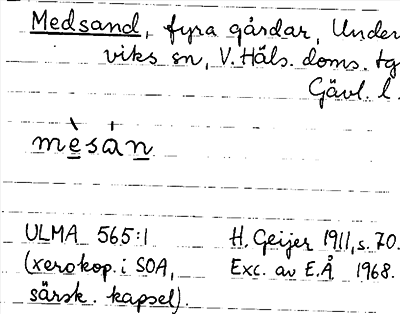 Medsand, fyra gårdar, Under
viks sn, V. Häls. doms. tg
Gävl. l.
mèsán
ULMA 565:1 H. Geijer 1911, s. 70.
(xerokop. i SOA, Exc. av E.Å 1968.
särsk. kapsel).